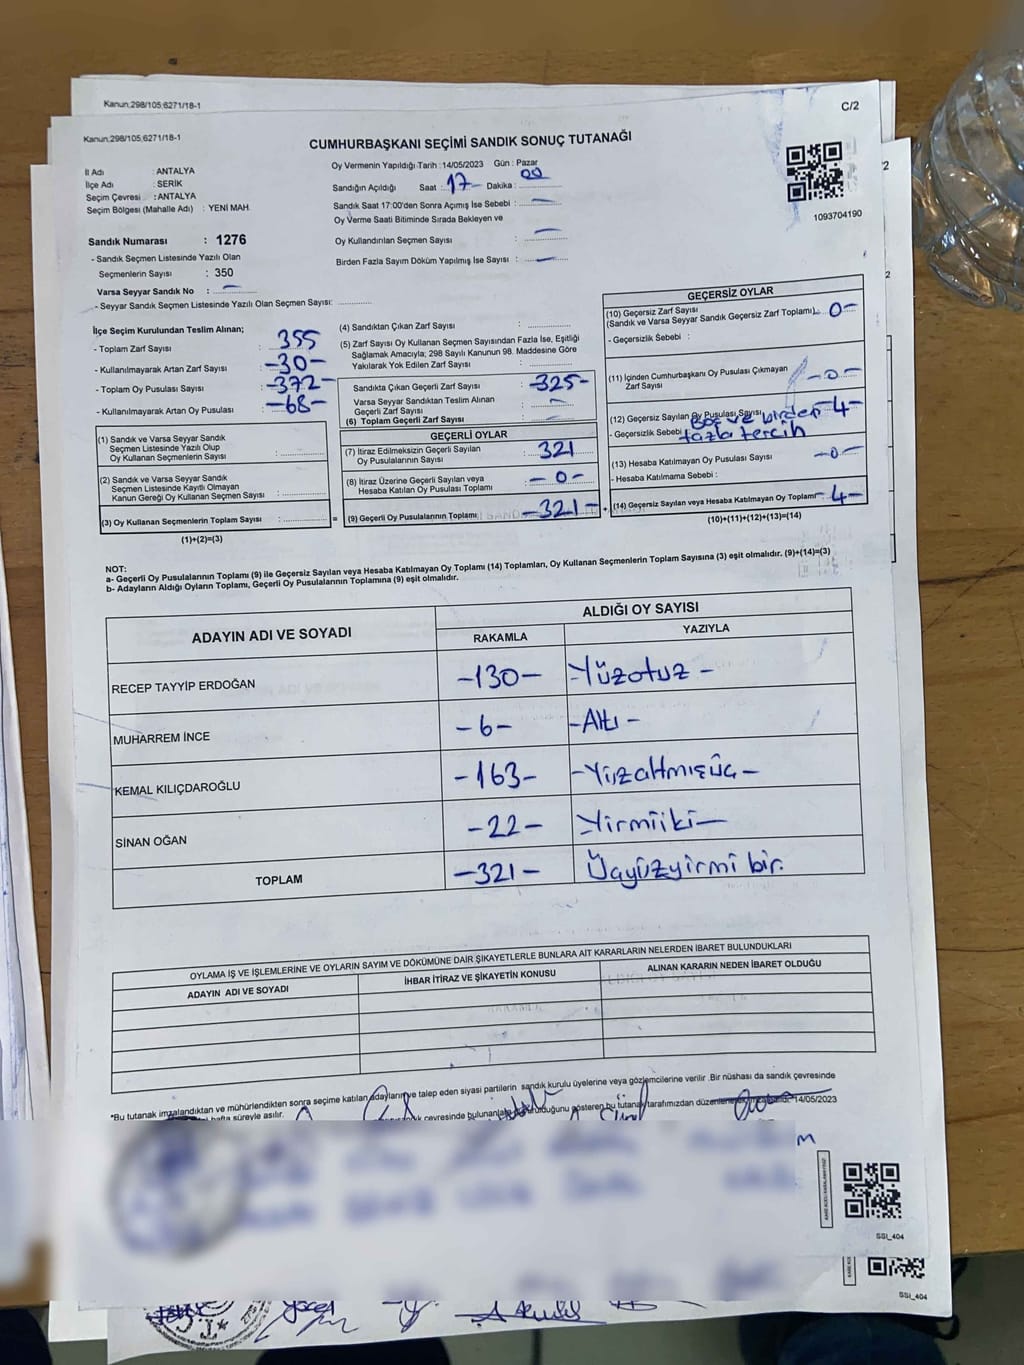 Kanun;298/105;6271/18-1
C/2
Kanun;298/105;6271/18-1
CUMHURBAŞKANI SEÇİMİ SANDIK SONUÇ TUTANAĞI
İl Adı : ANTALYA
İlçe Adı : SERİK
Seçim Çevresi : ANTALYA
Seçim Bölgesi (Mahalle Adı) : YENİ MAH.
Sandık Numarası : 1276
- Sandık Seçmen Listesinde Yazılı Olan
Seçmenlerin Sayısı : 350
Varsa Seyyar Sandık No : —
- Seyyar Sandık Seçmen Listesinde Yazılı Olan Seçmen Sayısı: ..............
Oy Vermenin Yapıldığı Tarih : 14/05/2023 Gün : Pazar
Sandığın Açıldığı Saat : 17— Dakika : 00
Sandık Saat 17:00'den Sonra Açımış İse Sebebi : —
Oy Verme Saati Bitiminde Sırada Bekleyen ve
Oy Kullandırılan Seçmen Sayısı : —
Birden Fazla Sayım Döküm Yapılmış İse Sayısı : —
1093704190
2
2
İlçe Seçim Kurulundan Teslim Alınan;
- Toplam Zarf Sayısı : 355
- Kullanılmayarak Artan Zarf Sayısı : -30-
- Toplam Oy Pusulası Sayısı : -372-
- Kullanılmayarak Artan Oy Pusulası : -68-
(1) Sandık ve Varsa Seyyar Sandık
Seçmen Listesinde Yazılı Olup
Oy Kullanan Seçmenlerin Sayısı : ..............
(2) Sandık ve Varsa Seyyar Sandık
Seçmen Listesinde Kayıtlı Olmayan
Kanun Gereği Oy Kullanan Seçmen Sayısı : ..............
(3) Oy Kullanan Seçmenlerin Toplam Sayısı : .............. =
(1)+(2)=(3)
(4) Sandıktan Çıkan Zarf Sayısı : ..............
(5) Zarf Sayısı Oy Kullanan Seçmen Sayısından Fazla İse, Eşitliği
Sağlamak Amacıyla; 298 Sayılı Kanunun 98. Maddesine Göre
Yakılarak Yok Edilen Zarf Sayısı : ..............
Sandıkta Çıkan Geçerli Zarf Sayısı : -325-
Varsa Seyyar Sandıktan Teslim Alınan
Geçerli Zarf Sayısı : —
(6) Toplam Geçerli Zarf Sayısı : —
GEÇERLİ OYLAR
(7) İtiraz Edilmeksizin Geçerli Sayılan
Oy Pusulasının Sayısı : 321
(8) İtiraz Üzerine Geçerli Sayılan veya
Hesaba Katılan Oy Pusulası Toplamı : -0-
(9) Geçerli Oy Pusulalarının Toplamı : -321- +
GEÇERSİZ OYLAR
(10) Geçersiz Zarf Sayısı
(Sandık ve Varsa Seyyar Sandık Geçersiz Zarf Toplamı) : 0-
- Geçersizlik Sebebi :
(11) İçinden Cumhurbaşkanı Oy Pusulası Çıkmayan
Zarf Sayısı : -0-
(12) Geçersiz Sayılan Oy Pusulası Sayısı : -4-
- Geçersizlik Sebebi : Boş ve birden
fazla tercih
(13) Hesaba Katılmayan Oy Pusulası Sayısı : -0-
- Hesaba Katılmama Sebebi :
(14) Geçersiz Sayılan veya Hesaba Katılmayan Oy Toplamı : -4-
(10)+(11)+(12)+(13)=(14)
NOT:
a- Geçerli Oy Pusulalarının Toplamı (9) ile Geçersiz Sayılan veya Hesaba Katılmayan Oy Toplamı (14) Toplamları, Oy Kullanan Seçmenlerin Toplam Sayısına (3) eşit olmalıdır. (9)+(14)=(3)
b- Adayların Aldığı Oyların Toplamı, Geçerli Oy Pusulalarının Toplamına (9) eşit olmalıdır.
ADAYIN ADI VE SOYADI
ALDIĞI OY SAYISI
RAKAMLA YAZIYLA
RECEP TAYYİP ERDOĞAN -130- -Yüzotuz-
MUHARREM İNCE -6- -Altı-
KEMAL KILIÇDAROĞLU -163- -Yüzaltmışüç-
SİNAN OĞAN -22- -Yirmiiki-
TOPLAM -321- Üçyüzyirmi bir.
OYLAMA İŞ VE İŞLEMLERİNE VE OYLARIN SAYIM VE DÖKÜMÜNE DAİR ŞİKAYETLERLE BUNLARA AİT KARARLARIN NELERDEN İBARET BULUNDUKLARI
ADAYIN ADI VE SOYADI
İHBAR İTİRAZ VE ŞİKAYETİN KONUSU
ALINAN KARARIN NEDEN İBARET OLDUĞU
*Bu tutanak imzalandıktan ve mühürlendikten sonra seçime katılan adayların ve talep eden siyasi partilerin sandık kurulu üyelerine veya gözlemcilerine verilir .Bir nüshası da sandık çevresinde
hafta süreyle asılır.
çevresinde bulunanlara duyurulduğunu gösteren bu tutanak tarafımızdan 14/05/2023
SSI_404
SSI_404